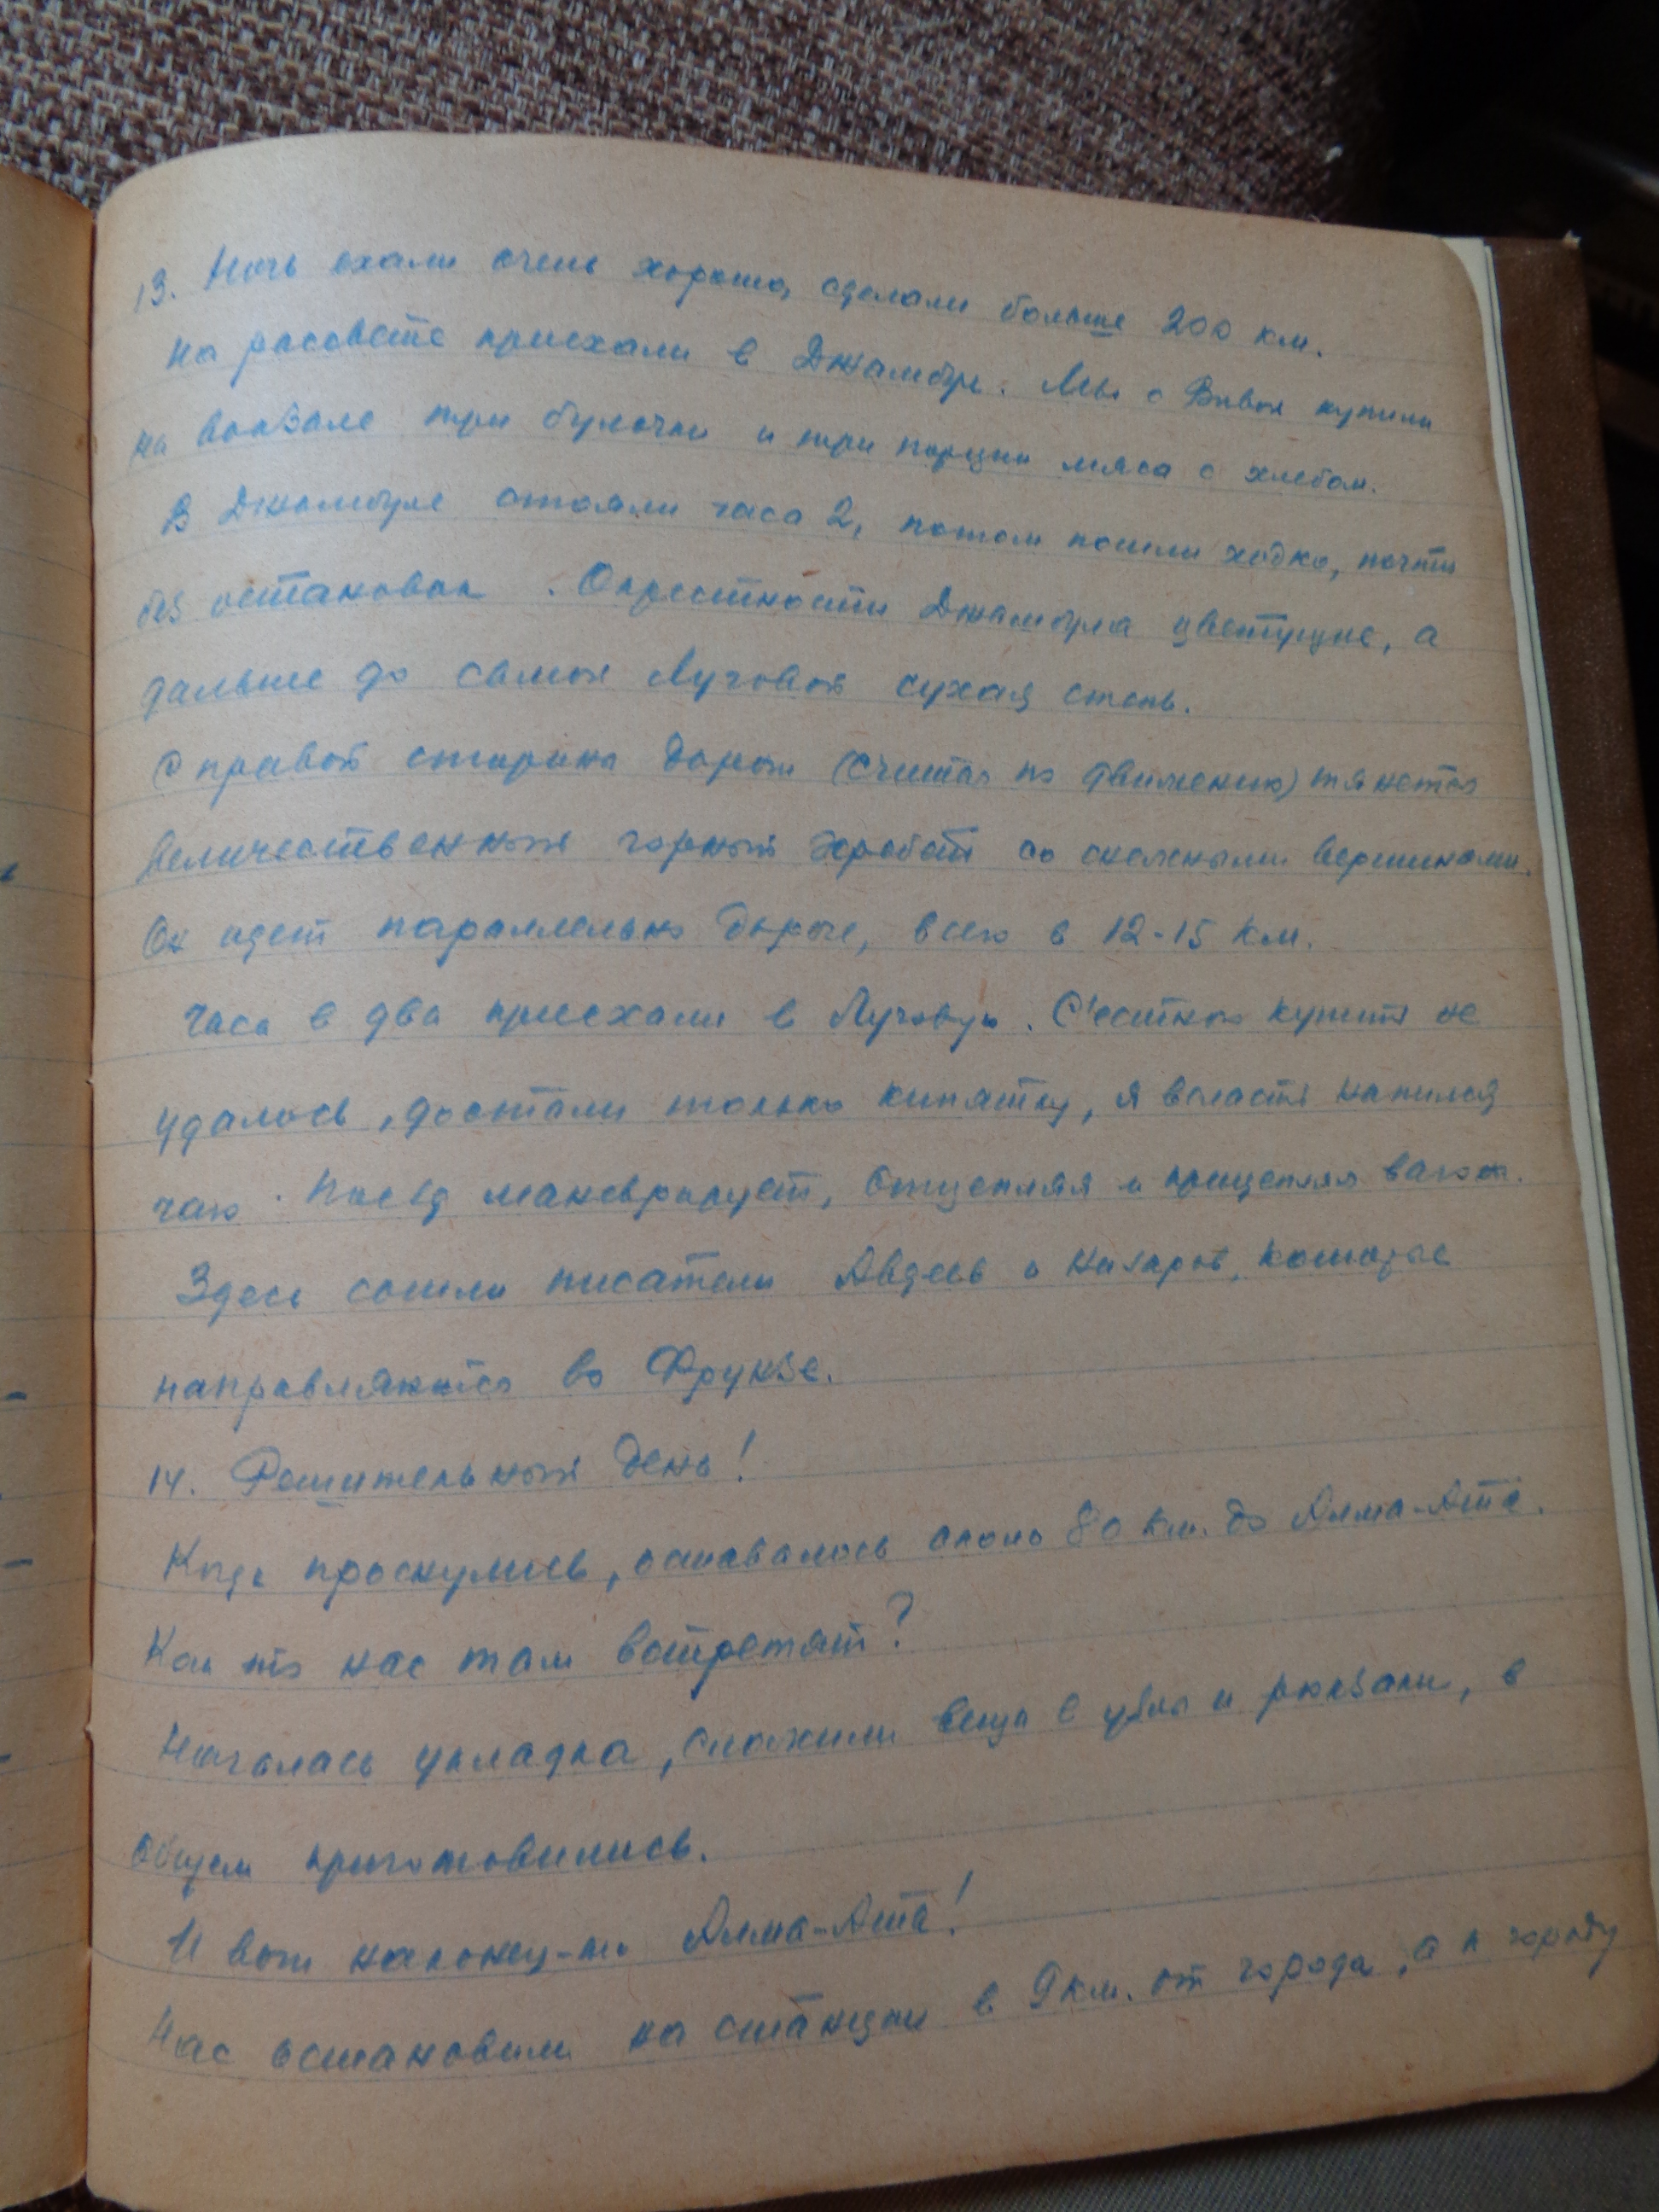 13. Ночь ехали очень хорошо, сделали больше 200 км.
На рассвете приехали в Джамбул. Мы с Вивой купили
на вокзале три булочки и три порции мяса с хлебом.
В Джамбуле стояли часа 2, потом пошли ходко, почти
без остановок. Окрестности Джамбула цветущие, а
дальше до самой Луговой сухая степь.
С правой стороны дороги (считая по движению) тянется
величественный горный хребет со снежными вершинами.
Он идет параллельно дороге, всего в 12-15 км.
Часа в два приехали в Луговую. С'естного купить не
удалось, достали только кипятку, я всласть напился
чаю. Поезд маневрирует, отцепляя и прицепляя вагон.
Здесь сошли писатели Авдеев и которые
направляются во Фрунзе.
14. Решительный день!
Когда проснулись, оставалось около 80 км. до Алма-Ата.
Как то нас там встретят?
Началась укладка, сложили вещи в узлы и рюкзаки, в
общем приготовились.
И вот наконец-то Алма-Ата!
Нас остановили на станции в 9 км. от города, а к городу